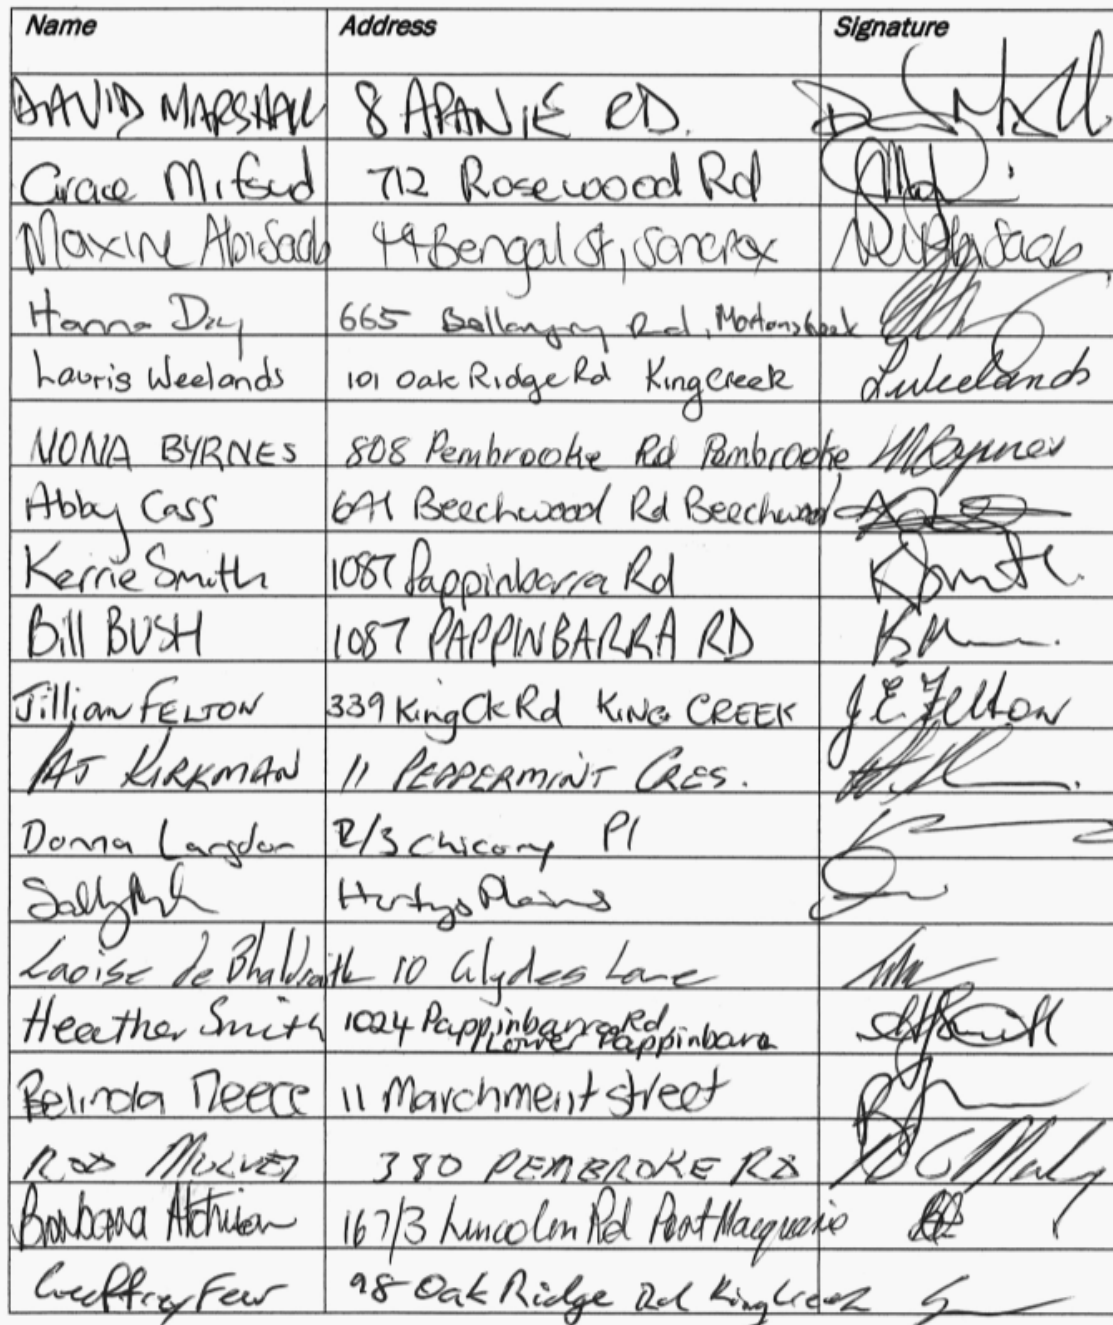 Name Address Signature
DAVID MARSHALL 8 APANIE RD.
Grace Mifsud 712 Rosewood Rd
Maxine AbiSaab 44 Bengal St, Sancrox
Hanna Day 665 Bellangry Rd, Mortons Creek
Lauris Weelands 101 Oak Ridge Rd King Creek LWeelands
NONA BYRNES 808 Pembrooke Rd Pembrooke NByrnes
Abby Cass 641 Beechwood Rd Beechwood
Kerrie Smith 1087 Pappinbarra Rd KSmith
Bill BUSH 1087 PAPPINBARRA RD
Jillian FELTON 339 King Ck Rd KING CREEK J.E. Felton
PAT KIRKMAN 11 PEPPERMINT CRES.
Donna Langdon 2/3 Chicory Pl
Sally Plains
Laoise de Bhaldraith 10 Glydes Lane
Heather Smith 1024 Pappinbarra Rd
Lower Pappinbara
Belinda 11 Marchment street
ROD MULVEY 380 PEMBROKE RD
Barbara Atchison 167/3 Lincoln Rd Port Macquarie
Geoffrey Few 98 Oak Ridge Rd King Creek